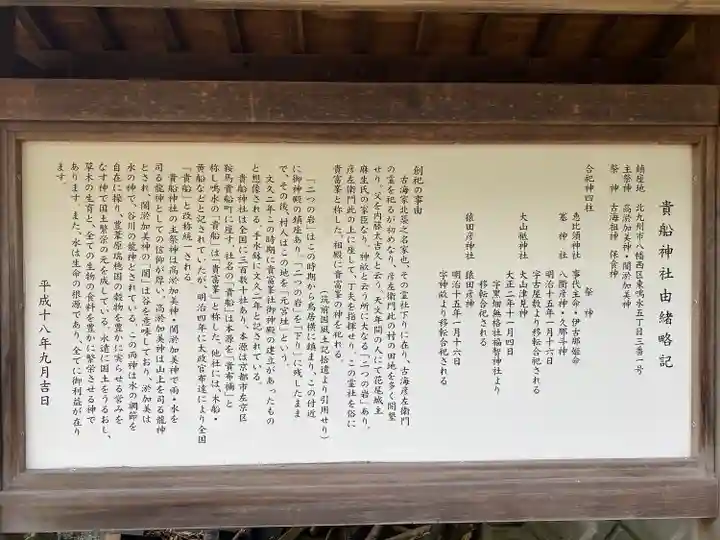 貴船神社由緒略記
鎮座地　北九州市八幡西区東鳴水五丁目三番一号
主祭神　高淤加美神・闇淤加美神
祭　神　古海祖神　保食神
合祀神四社
祭　神
恵比須神社　事代主命・伊古那姫命
塞　神　社　八衢彦神・久那斗神
明治十五年一月十六日
字古屋敷より移転合祀される
大山祇神社　大山津見神
大正二年十一月四日
字黒畑無格社福智神社より
移転合祀される
猿田彦神社　猿田彦神
明治十五年一月十六日
字神畝より移転合祀される
創祀の事由
古海家北築之名家也、その霊社下りに在り、古海彦左衛門
の霊を祀るが初めなり、彦左衛門此の村の田地を多く開墾
せり。父を内藤太古久と云う、天文年間の人にて花尾城主
麻生氏の家臣なり。神祠と云う所に大なる「二つの岩」あり。
彦左衛門此の上に座して、丁夫を指揮せり、この霊社を俗に
貴富峯と称した。相殿に貴富峯の神を祀れる。
（筑前国風土記拾遺より引用せり）
「二つの岩」はこの時期から鳥居横に鎮まり、この付近
に御神殿の鎮座あり。「二つの岩」を「下り」に残したまま
で、その後、村人はこの地を「元宮址」という。
文久二年この時期に貴富峯社御神殿の建立があったもの
と想像される。手水鉢に文久二年と記されている。
貴船神社は全国に三百数十社あり、本源は京都市左京区
鞍馬貴船町に座す。社名の「貴船」は本源を「貴布禰」と
称し鳴水の「貴船」は「貴富峯」と称した。他社には、木船・
黄船などと記されていたが、明治四年に太政官布達により全国
「貴船」と改称統一される
貴船神社の主祭神は高淤加美神・闇淤加美神で雨・水を
司る龍神としての信仰が厚い。高淤加美神は山上を司る龍神
とされ、闇淤加美神の「闇」は谷を意味しており、淤加美は
水の神で、谷川の龍神とされている。この両神は水の調節を
自在に操り、豊葦原瑞穂国の穀物を豊かに実らせる営みを
なす神で国土繁栄の元を成している。永遠に国土をうるおし、
草木の生育と、全ての生物の食料を豊かに繁栄させる神で
あります。また、水は生命の根源であり、全てに御利益が在り
ます。
平成十八年九月吉日